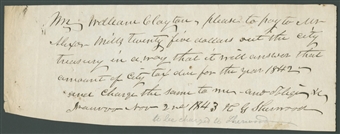 Mr William Clayton, please to pay to Mr
Mills twenty five dollars out the city
treasury in a way that it will answer that
amount of city tax due for the year 1842
and charge the same to me and Oblige &c
Nov 2nd 1843 G Sherwood